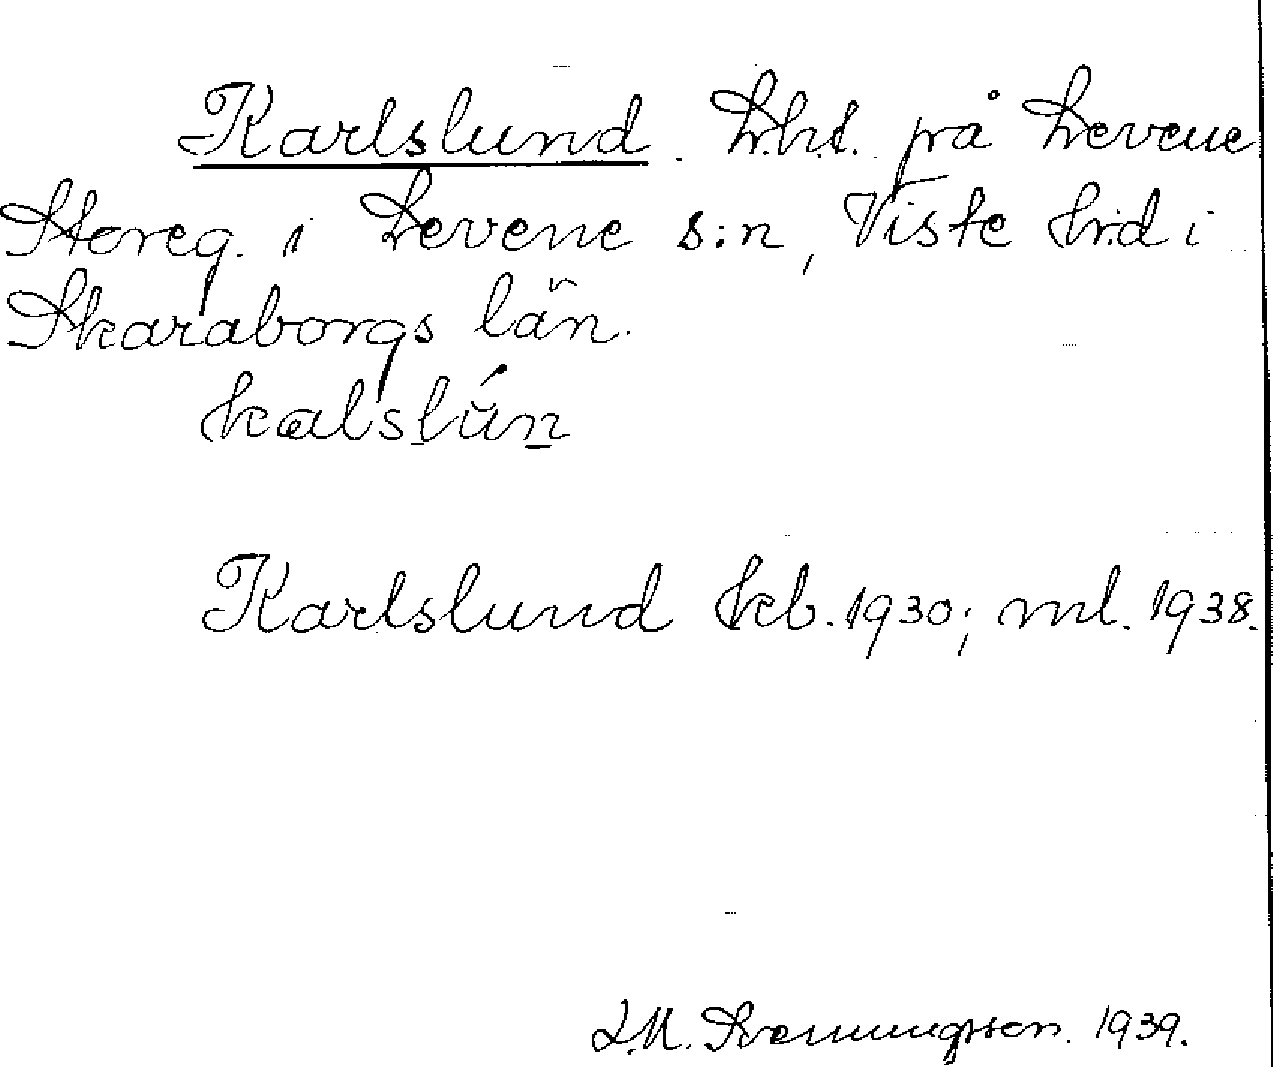 Karlslund. L.h.t. på Levene
Storeg. i Levene s:n, Viste h:d i
Skaraborgs län.
kalslún
Karlslund kb. 1930; ml. 1938.
J.M. Svenningsson. 1939.